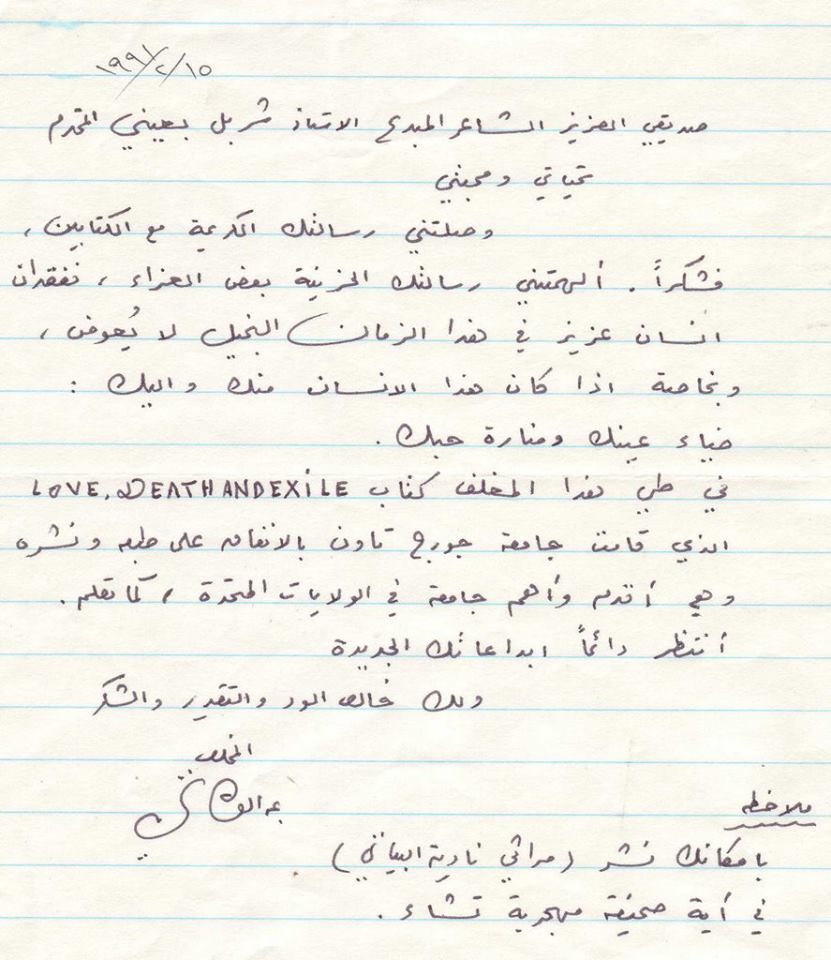 ١٩٩١/٢/١٥
صديقي العزيز الشاعر المبدع الاستاذ شربل بعيني المحترم
تحياتي ومحبتي
وصلتني رسالتك الكريمة مع الكتابين ،
فشكراً . ألهمتني رسالتك الحزينة بعض العزاء ، ففقدان
انسان عزيز في هذا الزمان البخيل لا يُعوض ،
وبخاصة اذا كان هذا الانسان منك واليك :
ضياء عينك ومنارة حبك .
في طي هذا المغلف كتاب LOVE, DEATH AND EXILE
الذي قامت جامعة جورج تاون بالانفاق على طبعه ونشره
وهي أقدم وأهم جامعة في الولايات المتحدة ، كما تعلم .
أنتظر دائماً ابداعاتك الجديدة
ولك خالص الود والتقدير والشكر
المخلص
عبد الوهاب البياتي
ملاحظه
بامكانك نشر (مراثي نادية البياتي)
في أية صحيفة مهجرية تشاء .